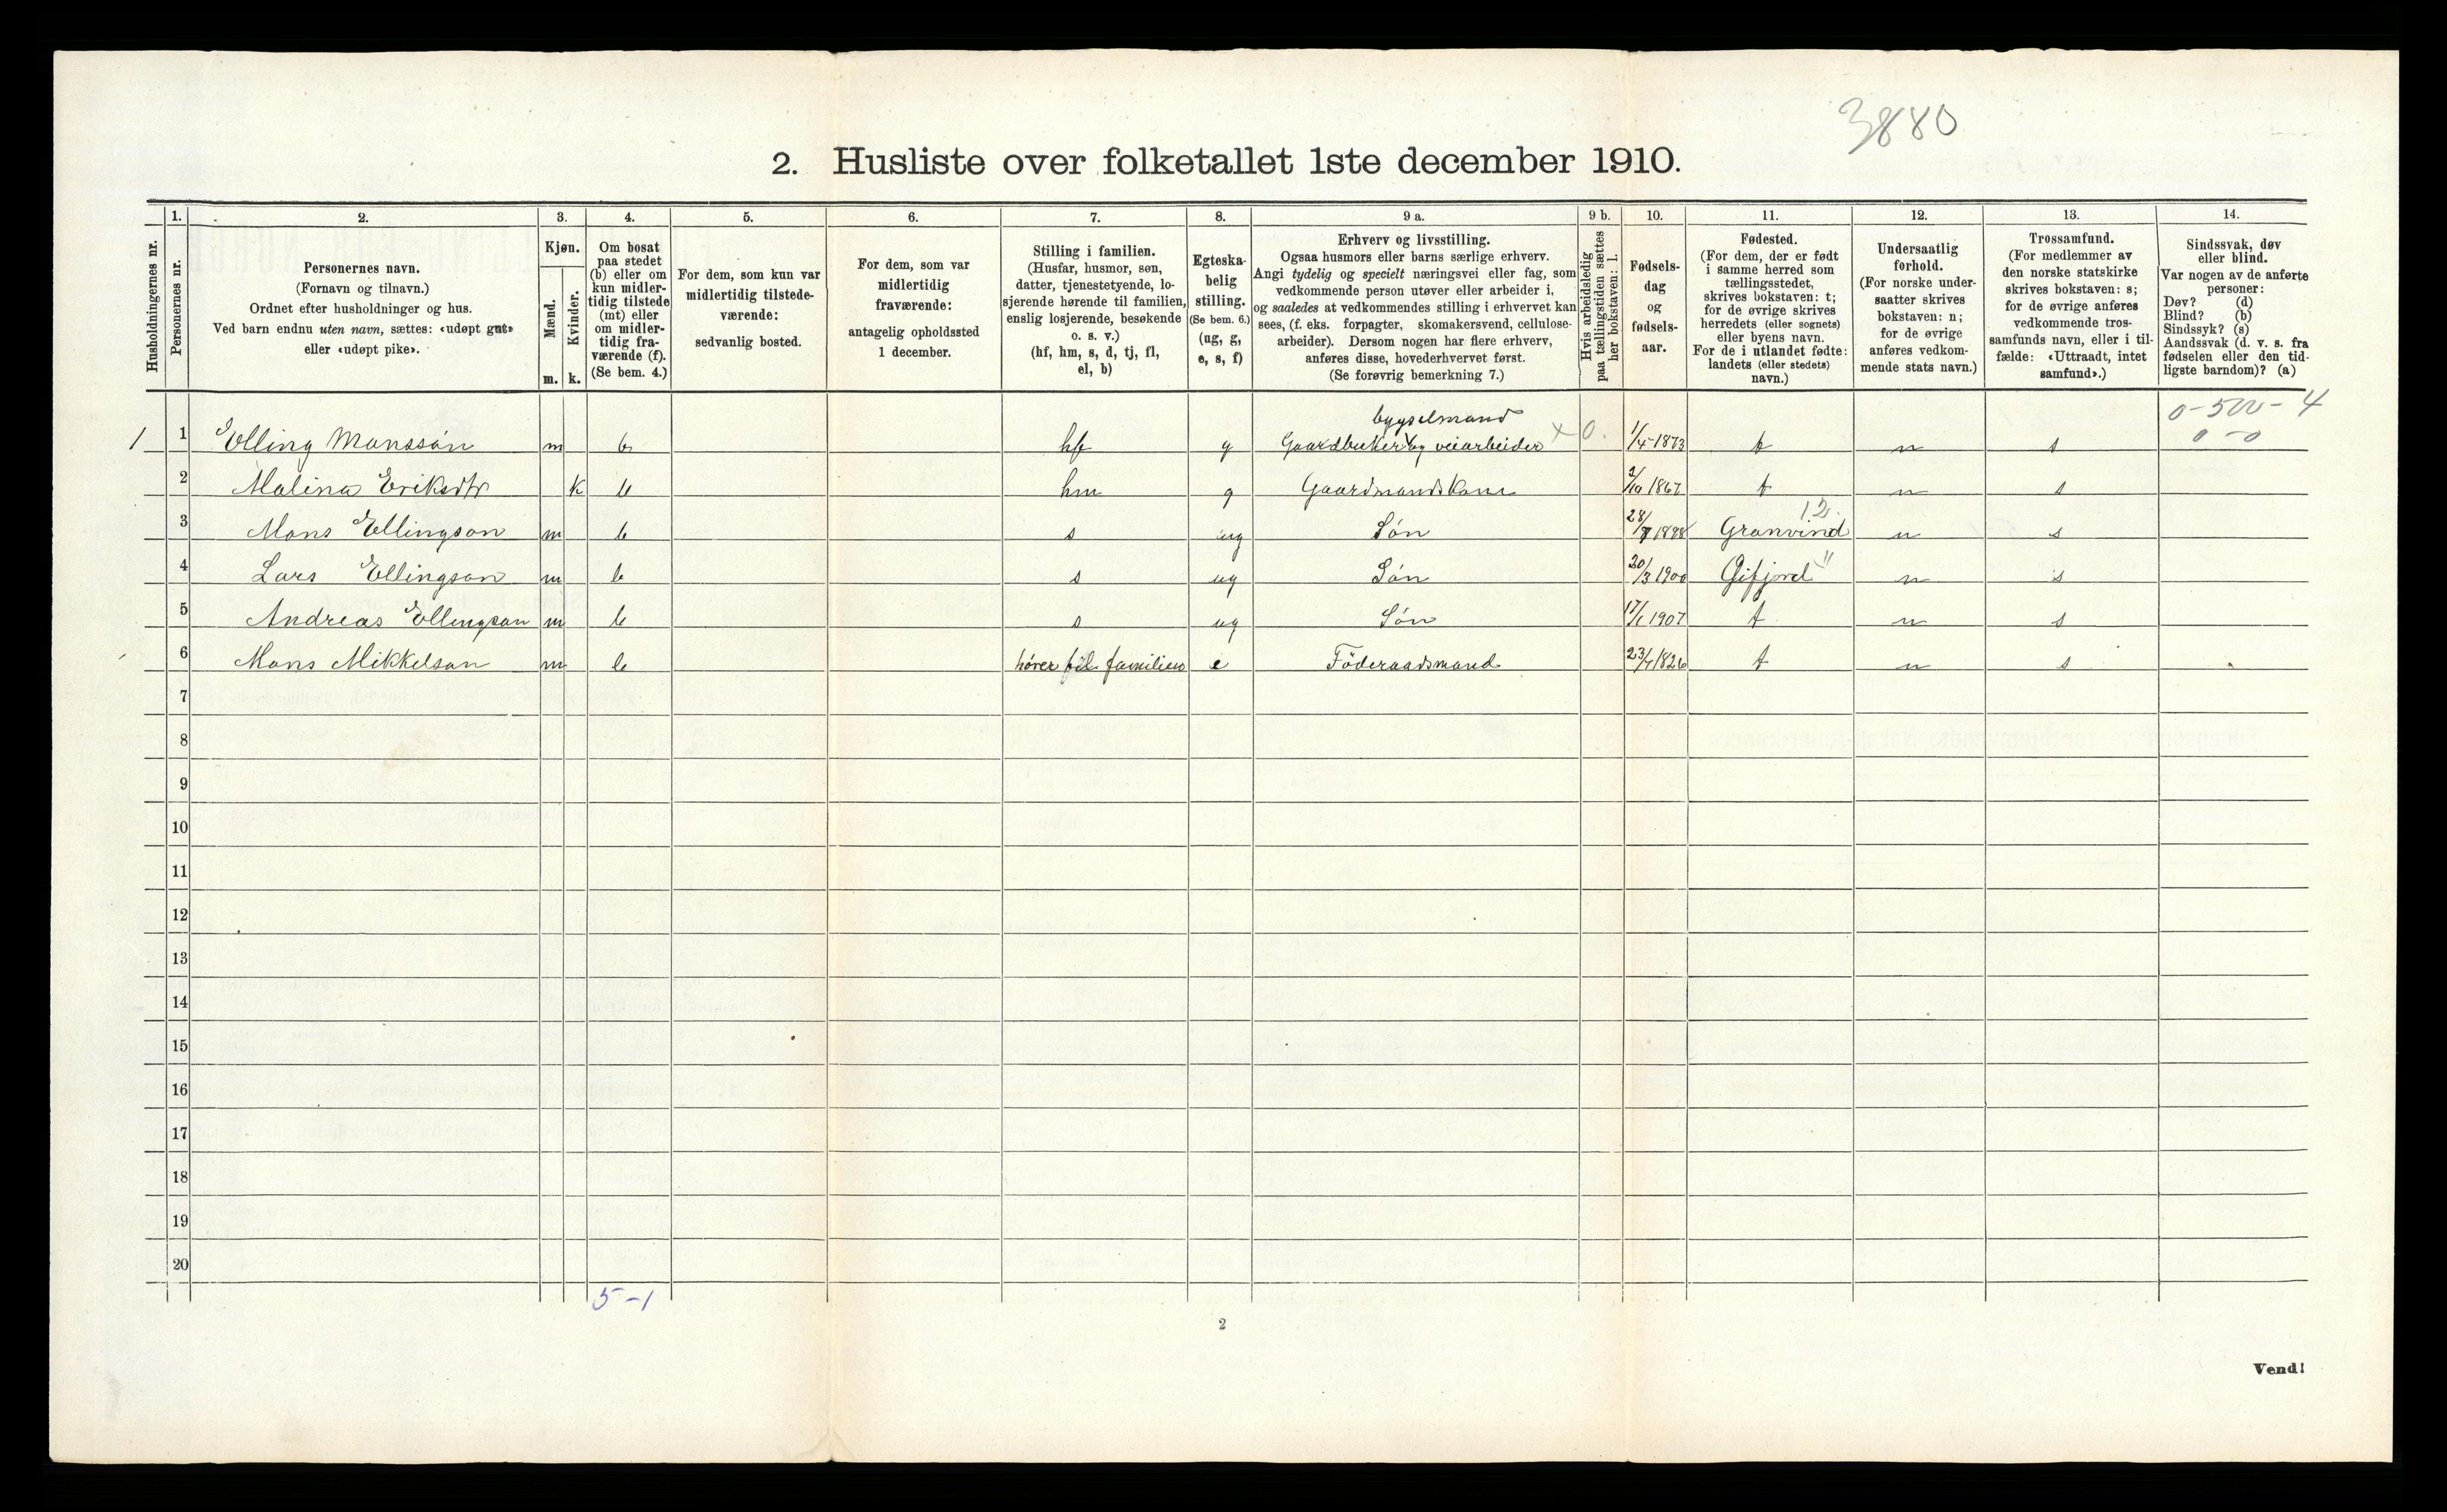 3880
2. Husliste over folketallet 1ste december 1910.
1. 2. 3. 4. 5. 6. 7. 8. 9 a. 9 b. 10. 11. 12. 13. 14.
Husholdningernes nr.
Personernes nr.
Personernes navn.
(Fornavn og tilnavn.)
Ordnet efter husholdninger og hus.
Ved barn endnu uten navn, sættes: «udøpt gut»
eller «udøpt pike».
Kjøn.
Mænd.
Kvinder.
m. k.
Om bosat
paa stedet
(b) eller om
kun midler-
tidig tilstede
(mt) eller
om midler-
tidig fra-
værende (f).
(Se bem. 4.)
For dem, som kun var
midlertidig tilstede-
værende:
sedvanlig bosted.
For dem, som var
midlertidig
fraværende:
antagelig opholdssted
1 december.
Stilling i familien.
(Husfar, husmor, søn,
datter, tjenestetyende, lo-
sjerende hørende til familien,
enslig losjerende, besøkende
o. s. v.)
(hf, hm, s, d, tj, fl,
el, b)
Egteska-
belig
stilling.
(Se bem. 6.)
(ug, g,
e, s, f)
Erhverv og livsstilling.
Ogsaa husmors eller barns særlige erhverv.
Angi tydelig og specielt næringsvei eller fag, som
vedkommende person utøver eller arbeider i,
og saaledes at vedkommendes stilling i erhvervet kan
sees, (f. eks. forpagter, skomakersvend, cellulose-
arbeider). Dersom nogen har flere erhverv,
anføres disse, hovederhvervet først.
(Se forøvrig bemerkning 7.)
Hvis arbeidsledig
paa tællingstiden sættes
her bokstaven: l.
Fødsels-
dag
og
fødsels-
aar.
Fødested.
(For dem, der er født
i samme herred som
tællingsstedet,
skrives bokstaven: t;
for de øvrige skrives
herredets (eller sognets)
eller byens navn.
For de i utlandet fødte:
landets (eller stedets)
navn.)
Undersaatlig
forhold.
(For norske under-
saatter skrives
bokstaven: n;
for de øvrige
anføres vedkom-
mende stats navn.)
Trossamfund.
(For medlemmer av
den norske statskirke
skrives bokstaven: s;
for de øvrige anføres
vedkommende tros-
samfunds navn, eller i til-
fælde: «Uttraadt, intet
samfund».)
Sindssvak, døv
eller blind.
Var nogen av de anførte
personer:
Døv? (d)
Blind? (b)
Sindssyk? (s)
Aandssvak (d. v. s. fra
fødselen eller den tid-
ligste barndom)? (a)
bygselmand 0-500-4
1 1 Elling Monssøn m b hf g Gaardbruker og veiarbeider x 0. 1/4-1873 t n s 0-0
2 Malina Eriksdtr k b hm g Gaardmandskone 2/10 1867 t n s
12.
3 Mons Ellingson m b s ug Søn 28/8 1898 Granvind n s
4 Lars Ellingson m b s ug Søn 20/3 1900 Gifjord " n s
5 Andreas Ellingson m b s ug Søn 17/1 1907 t n s
6 Mons Mikkelson m b hører til familien e Föderaadsmand 23/7 1826 t n s
7
8
9
10
11
12
13
14
15
16
17
18
19
20
5-1
2
Vend!